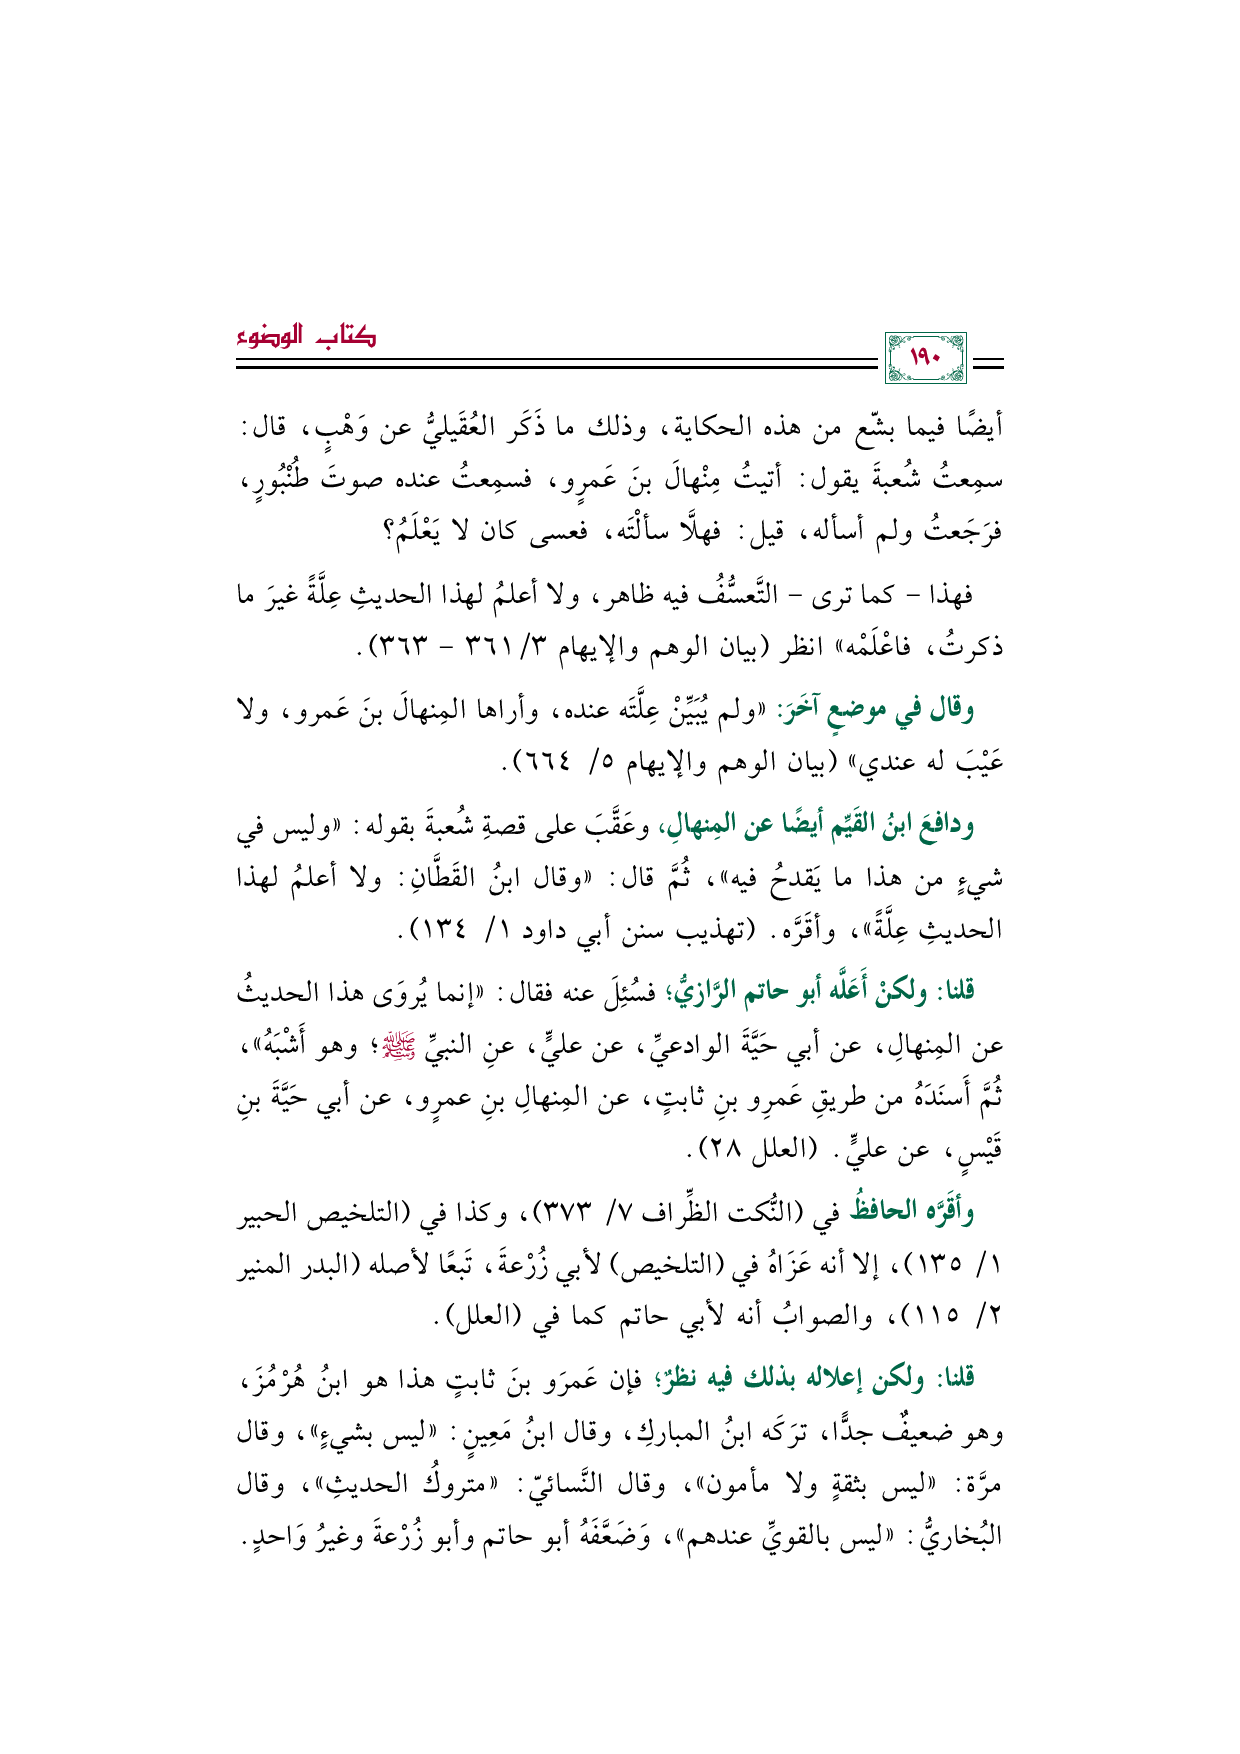 كتاب الوضوء
١٩٠
أيضًا فيما بشّع من هذه الحكاية، وذلك ما ذَكَر العُقَيليُّ عن وَهْبٍ، قال:
سمِعتُ شُعبةَ يقول: أتيتُ مِنْهالَ بنَ عَمرٍو، فسمِعتُ عنده صوتَ طُنْبُورٍ،
فرَجَعتُ ولم أسأله، قيل: فهلَّا سألْتَه، فعسى كان لا يَعْلَمُ؟
فهذا – كما ترى – التَّعسُّفُ فيه ظاهر، ولا أعلمُ لهذا الحديثِ عِلَّةً غيرَ ما
ذكرتُ، فاعْلَمْه» انظر (بيان الوهم والإيهام ٣/ ٣٦١ – ٣٦٣).
وقال في موضعٍ آخَرَ: «ولم يُبَيِّنْ عِلَّتَه عنده، وأراها المِنهالَ بنَ عَمرو، ولا
عَيْبَ له عندي» (بيان الوهم والإيهام ٥/ ٦٦٤).
ودافعَ ابنُ القَيِّم أيضًا عن المِنهالِ، وعَقَّبَ على قصةِ شُعبةَ بقوله: «وليس في
شيءٍ من هذا ما يَقدحُ فيه»، ثُمَّ قال: «وقال ابنُ القَطَّانِ: ولا أعلمُ لهذا
الحديثِ عِلَّةً»، وأقَرَّه. (تهذيب سنن أبي داود ١/ ١٣٤).
قلنا: ولكنْ أَعَلَّه أبو حاتم الرَّازيُّ؛ فسُئِلَ عنه فقال: «إنما يُروَى هذا الحديثُ
عن المِنهالِ، عن أبي حَيَّةَ الوادعيِّ، عن عليٍّ، عنِ النبيِّ ﷺ؛ وهو أَشْبَهُ»،
ثُمَّ أَسنَدَهُ من طريقِ عَمرِو بنِ ثابتٍ، عن المِنهالِ بنِ عمرٍو، عن أبي حَيَّةَ بنِ
قَيْسٍ، عن عليٍّ. (العلل ٢٨).
وأقَرَّه الحافظُ في (النُّكت الظِّراف ٧/ ٣٧٣)، وكذا في (التلخيص الحبير
١/ ١٣٥)، إلا أنه عَزَاهُ في (التلخيص) لأبي زُرْعةَ، تَبعًا لأصله (البدر المنير
٢/ ١١٥)، والصوابُ أنه لأبي حاتم كما في (العلل).
قلنا: ولكن إعلاله بذلك فيه نظرٌ؛ فإن عَمرَو بنَ ثابتٍ هذا هو ابنُ هُرْمُزَ،
وهو ضعيفٌ جدًّا، ترَكَه ابنُ المباركِ، وقال ابنُ مَعِينٍ: «ليس بشيءٍ»، وقال
مرَّة: «ليس بثقةٍ ولا مأمون»، وقال النَّسائيّ: «متروكُ الحديثِ»، وقال
البُخاريُّ: «ليس بالقويِّ عندهم»، وَضَعَّفَهُ أبو حاتم وأبو زُرْعةَ وغيرُ وَاحدٍ.